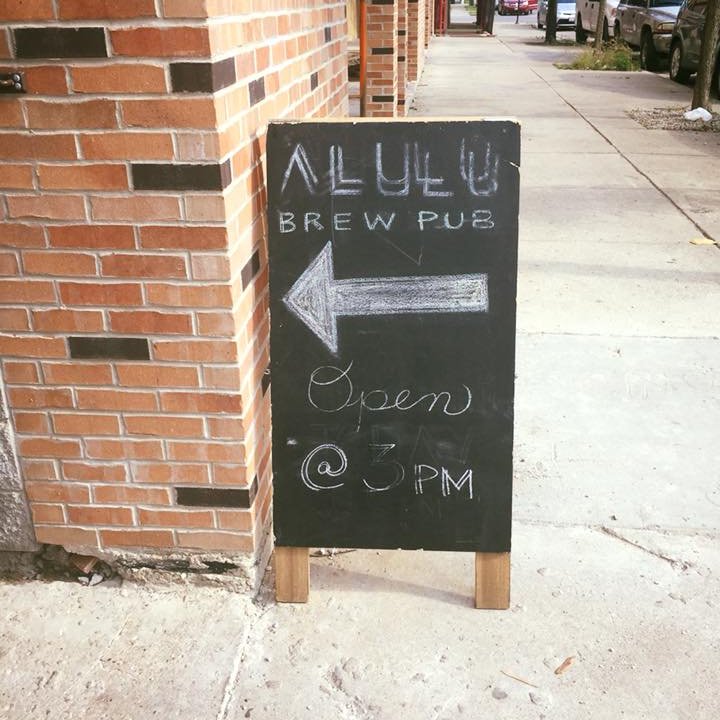 ALULU
BREW PUB
Open
@ 3 PM